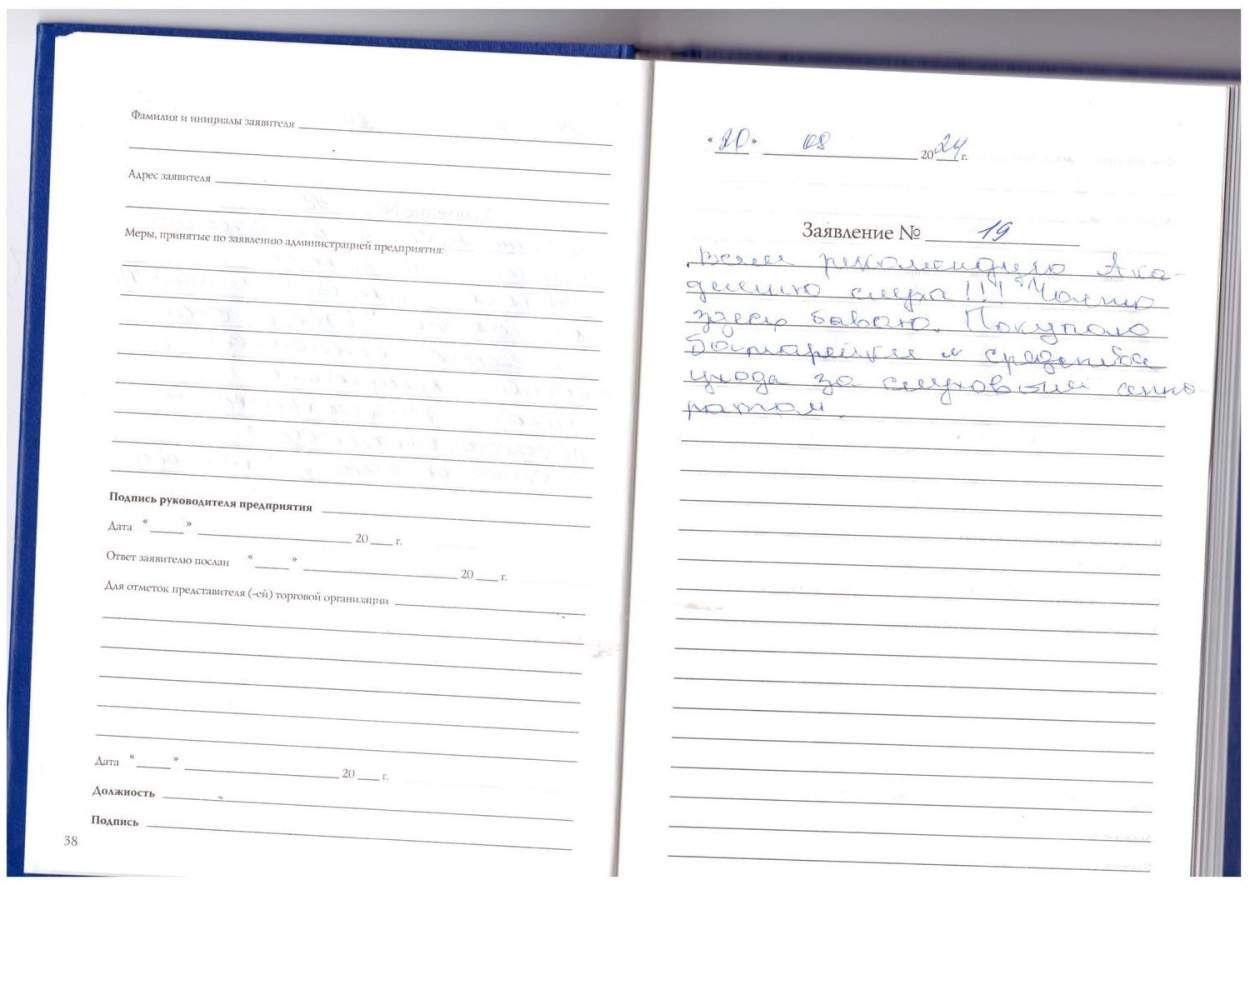 Фамилия и инициалы заявителя
Адрес заявителя
Меры, принятые по заявлению администрацией предприятия:
Подпись руководителя предприятия
Дата "____" ____________ 20 ___ г.
Ответ заявителю послан "____" ____________ 20 ___ г.
Для отметок представителя (-ей) торговой организации
Дата "____" ____________ 20 ___ г.
Должность
Подпись
38
"20" 08 2024 г.
Заявление № 19
Всем рекомендую Ака-
демию слуха!!! Часто
здесь бываю. Покупаю
батарейки и средства
ухода за слуховым аппа
ратом.